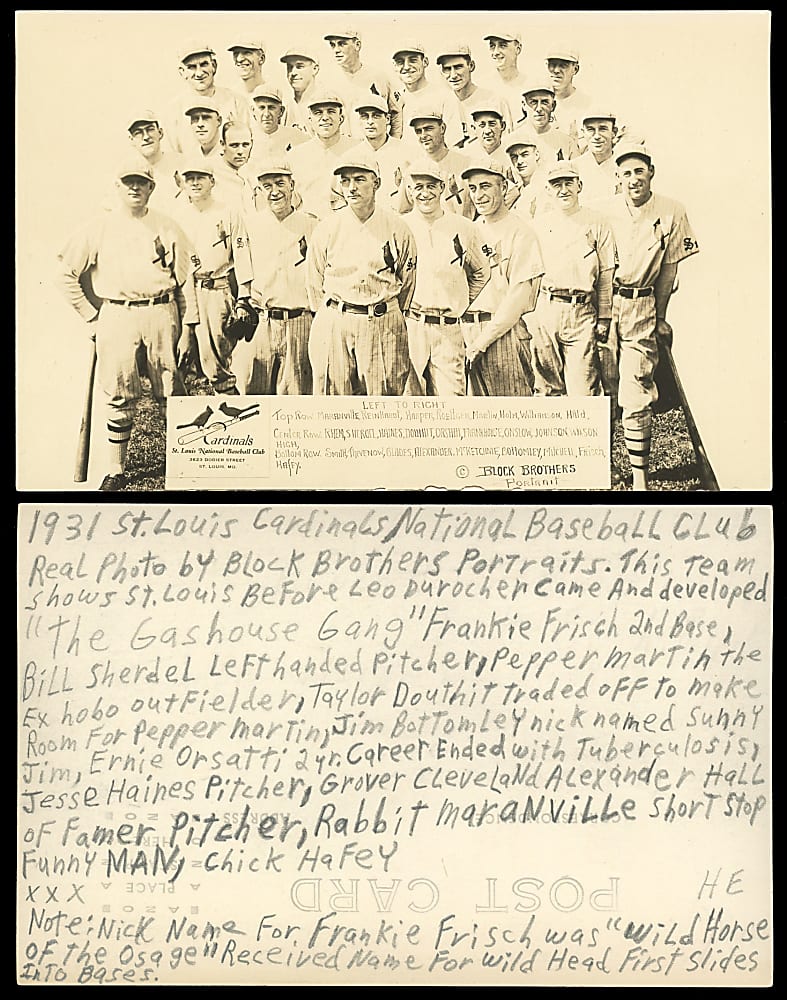 LEFT TO RIGHT
Top Row Maranville, Reinhardt, Harper, Roettger, Martin, Holm, Williamson, Hald,
Center Row. RHEM, SHERDEL, HAINES, DOUTHIT, ORSATTI, FRANKHOUSE, ONSLOW, JOHNSON
HIGH,
Bottom Row. Smith, Thevenow, BLADES, ALEXANDER, McKETCHNIE, BOTTOMLEY, MITCHELL, Frisch
Hafey.
© BLOCK BROTHERS
Portrait
Cardinals
St. Louis National Baseball Club
3623 DODIER STREET
ST. LOUIS, MO.
1931 St. Louis Cardinals, National Baseball Club
Real Photo by Block Brothers Portraits. This Team
shows St. Louis Before Leo Durocher Came And developed
"The Gashouse Gang" Frankie Frisch 2nd Base,
Bill Sherdel Lefthanded Pitcher, Pepper Martin the
Ex hobo outfielder, Taylor Douthit traded off to make
Room For Pepper Martin, Jim Bottomley nick named Sunny
Jim, Ernie Orsatti 2 yr. Career Ended with Tuberculosis,
Jesse Haines Pitcher, Grover Cleveland Alexander Hall
of Famer Pitcher, Rabbit Maranville short stop
Funny MAN, Chick Hafey
XXX
HE
POST CARD
CORRESPONDENCE
ADDRESS
PLACE
Note: Nick Name For Frankie Frisch was "Wild Horse
of the Osage" Received Name For Wild Head First Slides
Into Bases.